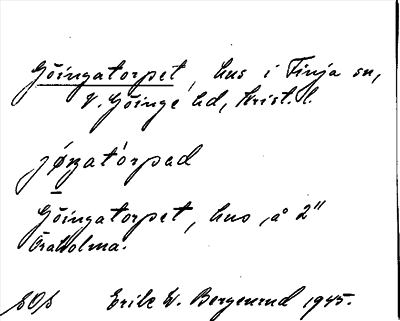 Göingatorpet, hus i Finja sn,
V. Göinge hd, Krist. l.
jøŋatòrpad
Göingatorpet, hus, å 2"
Öraholma.
Erik W. Bergenrud 1945.